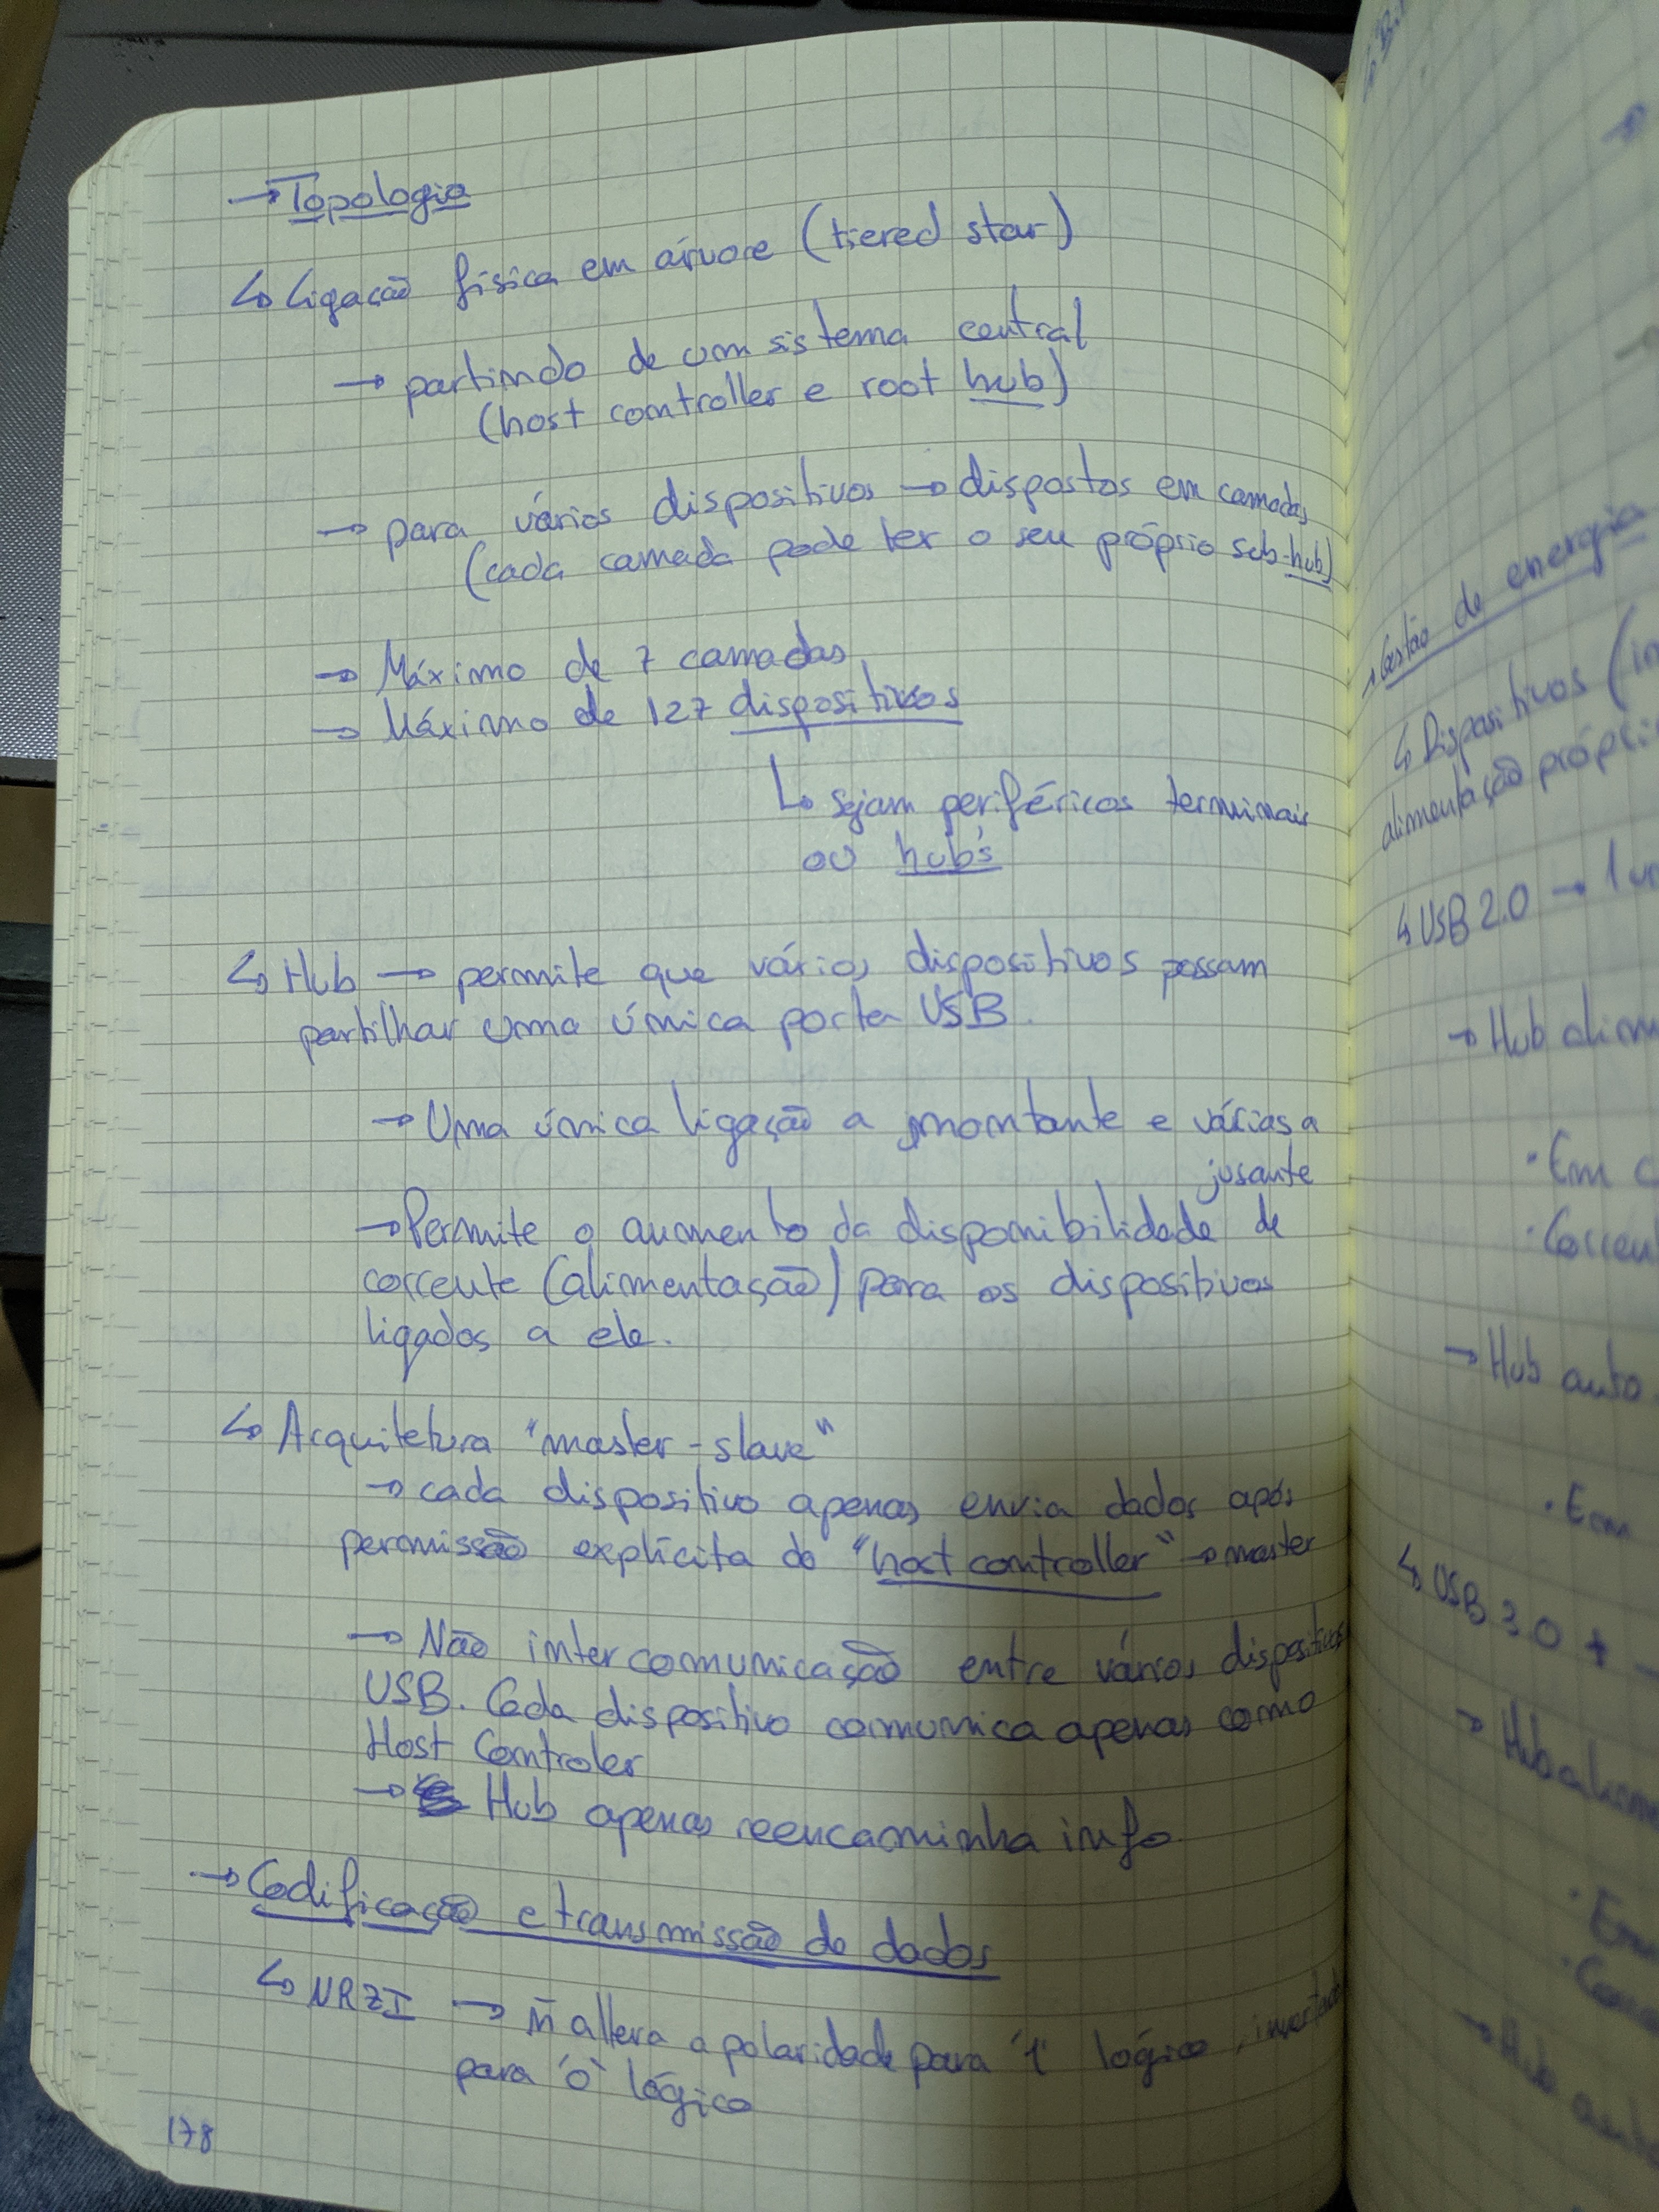 → Topologia
↳ Ligação física em árvore (tiered star)
→ partindo de um sistema central
(host controller e root hub)
→ para vários dispositivos → dispostos em camadas
(cada camada pode ter o seu próprio sub-hub)
→ Máximo de 7 camadas
→ Máximo de 127 dispositivos
↳ sejam periféricos terminais
ou hub's
↳ Hub → permite que vários dispositivos possam
partilhar uma única porta USB.
→ Uma única ligação a montante e várias a
jusante
→ Permite o aumento da disponibilidade de
corrente (alimentação) para os dispositivos
ligados a ele.
↳ Arquitetura "master-slave"
→ cada dispositivo apenas envia dados após
permissão explícita do "host controller" → master
→ Não intercomunicação entre vários dispositivos
USB. Cada dispositivo comunica apenas como
Host Controler
→ Hub apenas reencaminha info
→ Codificação e transmissão de dados
↳ NRZI → ñ altera a polaridade para '1' lógico,
para '0' lógico
178
→ Gestão de energia
↳ Dispositivos (in
alimentação própri
↳ USB 2.0 → 1 un
→ Hub alim
• Em c
• Corren
→ Hub auto
• Em
↳ USB 3.0 +
→ Hub alim
• Em
→ Hub auto